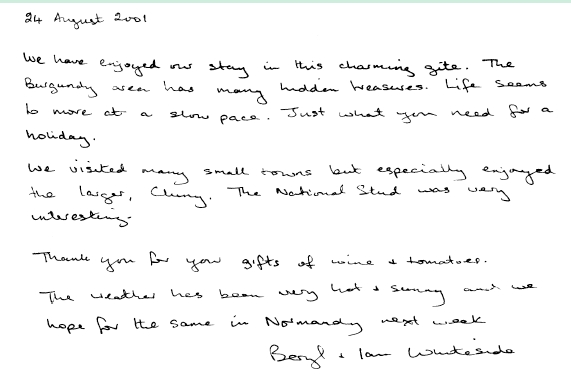 24 August 2001
We have enjoyed our stay in this charming gite. The
Burgundy area has many hidden treasures. Life seems
to move at a slow pace. Just what you need for a
holiday.
We visited many small towns but especially enjoyed
the larger, Cluny. The National Stud was very
interesting.
Thank you for you gifts of wine & tomatoes.
The weather has been very hot & sunny and we
hope for the same in Normandy next week
Beryl & Ian Whiteside